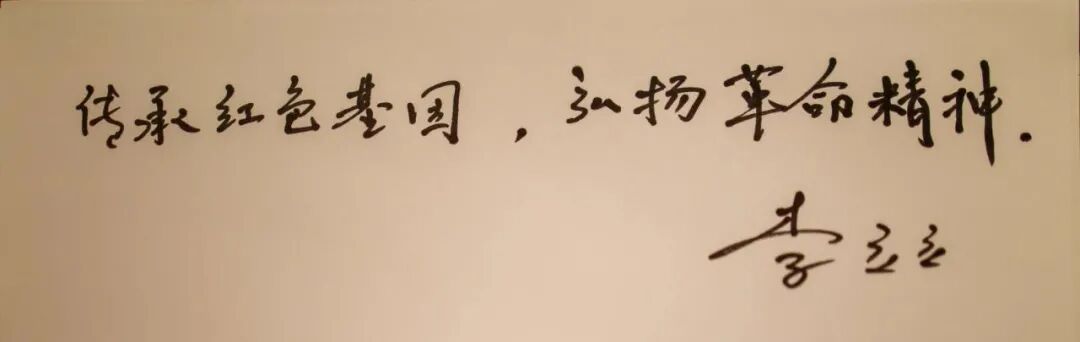 传承红色基因，弘扬革命精神.
李立立